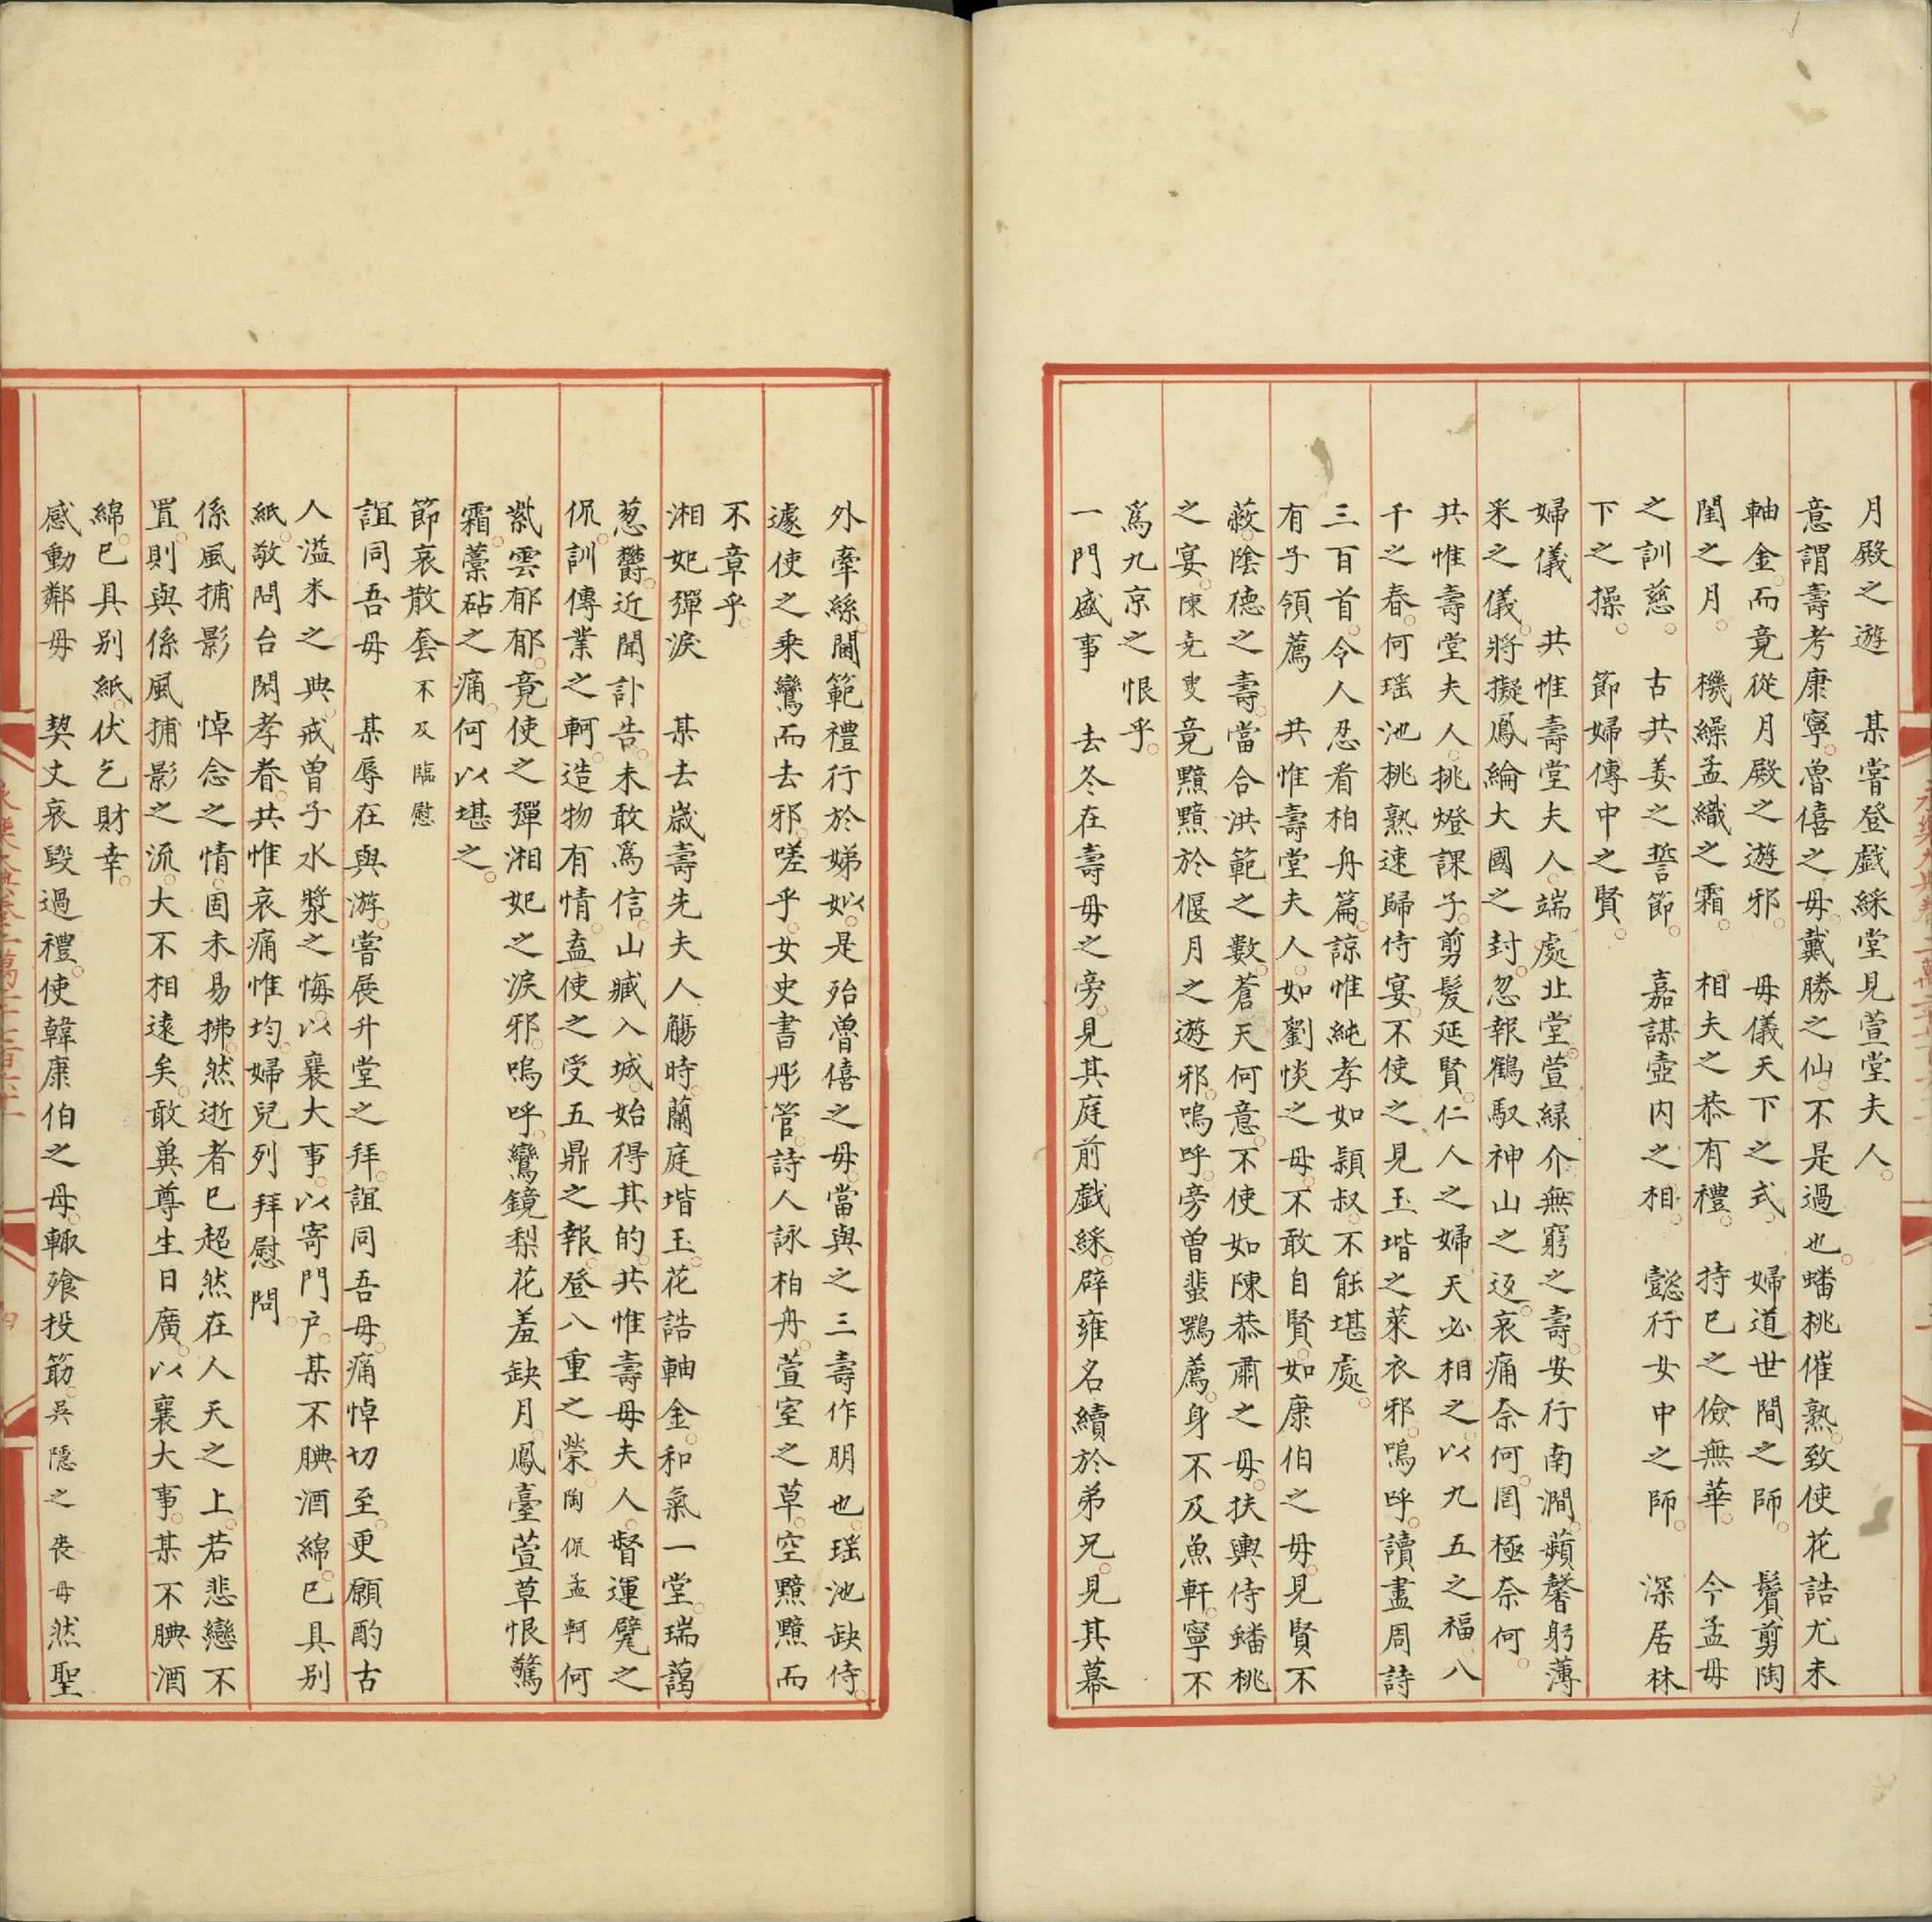 月殿之遊　某嘗登戲綵堂見萱堂夫人
意謂壽考康寧魯僖之母戴勝之仙不是過也蟠桃催熟致使花誥尤未
軸金而竟從月殿之遊邪　母儀天下之式　婦道世間之師　鬢剪陶
閨之月　機繰孟織之霜　相夫之恭有禮　持已之儉無華　今孟母
之訓慈　古共姜之誓節　嘉謀壼内之相　懿行女中之師　深居林
下之操　節婦傳中之賢
婦儀　共惟壽堂夫人端處北堂萱緑介無窮之壽安行南澗蘋馨躬薄
采之儀將擬鳳綸大國之封忽報鶴馭神山之返哀痛奈何罔極奈何
共惟壽堂夫人挑燈課子剪髮延賢仁人之婦天必相之以九五之福八
千之春何瑶池桃熟速歸侍宴不使之見玉堦之萊衣邪嗚呼讀盡周詩
三百首令人忍看柏舟篇諒惟純孝如穎叔不能堪處
有子領薦　共惟壽堂夫人如劉惔之母不敢自賢如康伯之母見賢不
蔽陰德之壽當合洪範之數蒼天何意不使如陳恭肅之母扶輿侍蟠桃
之宴陳堯叟竟黯黯於偃月之遊邪嗚呼旁曽蜚鶚薦身不及魚軒寧不
爲九京之恨乎
一門盛事　去冬在壽母之旁見其庭前戲綵辟雍名續於弟兄見其幕
外牽絲閫範禮行於娣姒是殆魯僖之母當與之三壽作朋也瑶池缺侍
遽使之乗鸞而去邪嗟乎女史書彤管詩人詠柏舟萱室之草空黯黯而
不章乎
湘妃彈淚　某去歲壽先夫人觴時蘭庭堦玉花誥軸金和氣一堂瑞藹
葱欝近聞訃告未敢爲信山臧入城始得其的共惟壽母夫人督運甓之
侃訓傳業之軻造物有情盍使之受五鼎之報登八重之榮陶侃孟軻何
紫雲郁郁竟使之彈湘妃之淚邪嗚呼鸞鏡梨花羞缺月鳳臺萱草恨驚
霜藁砧之痛何以堪之
節哀散套不及臨慰
誼同吾母　某辱在與游嘗展升堂之拜誼同吾母痛悼切至更願酌古
人溢米之典戒曽子水漿之悔以襄大事以寄門户某不腆酒綿已具别
紙敬問台閎孝眷共惟哀痛惟均婦兒列拜慰問
係風捕影　悼念之情固未易拂然逝者已超然在人天之上若悲戀不
置則與係風捕影之流大不相遠矣敢兾尊生日廣以襄大事某不腆酒
綿已具别紙伏乞財幸
感動鄰母　契丈哀毁過禮使韓康伯之母輙飱投筯吳隠之丧母然聖